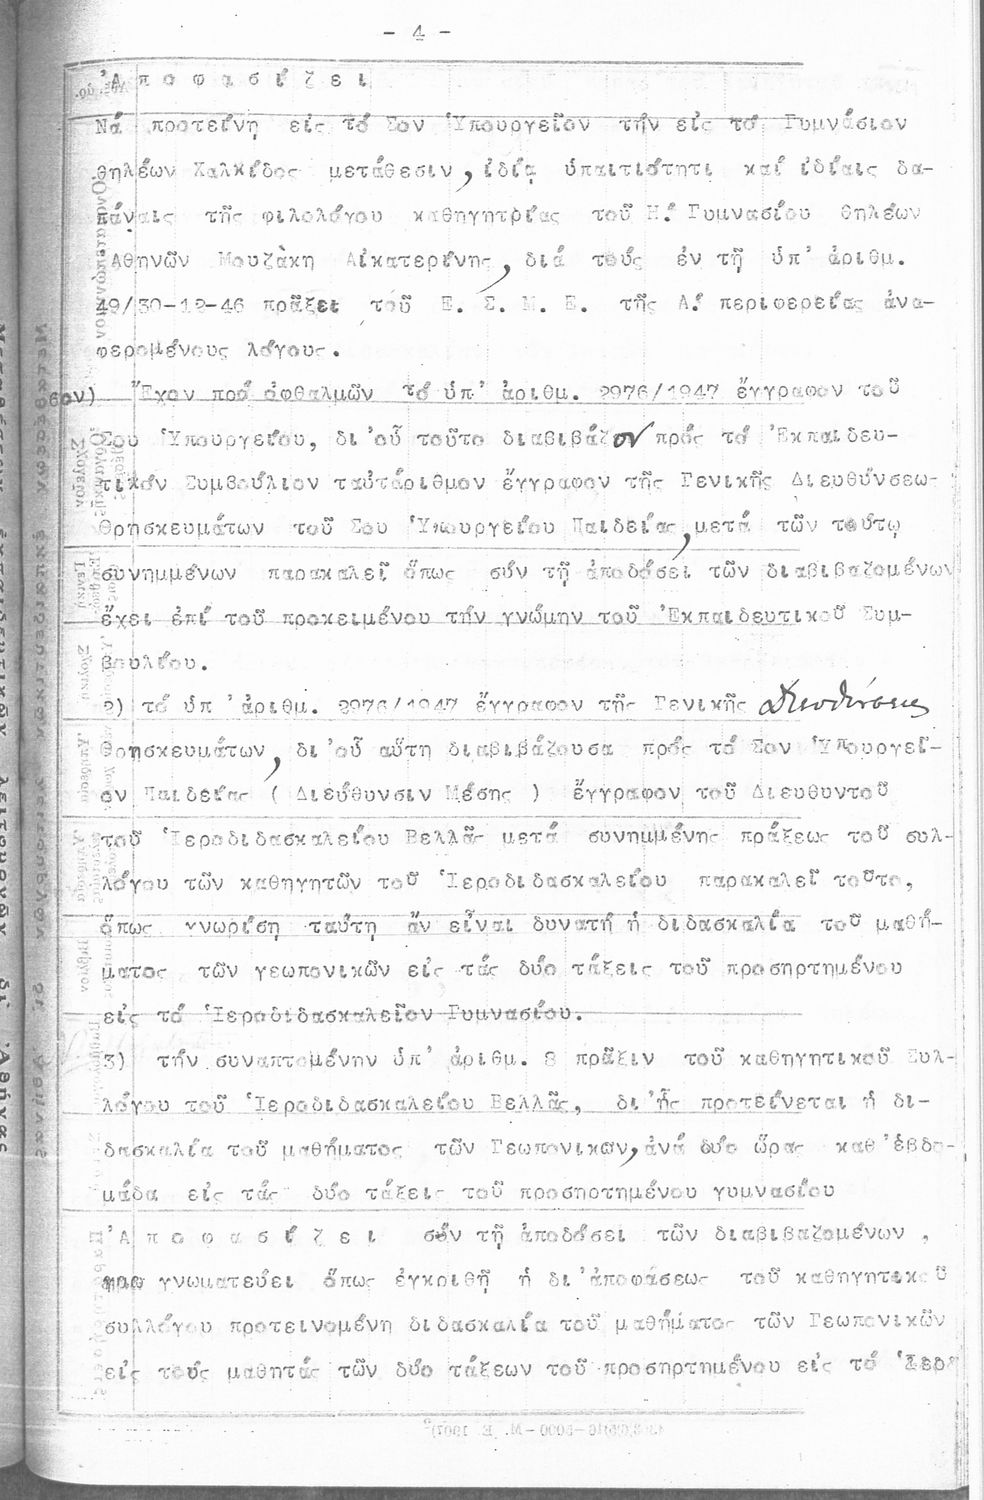 - 4 -
Ἀ π ο φ α σ ί ζ ε ι
Νά προτείνῃ εἰς τό Σον Ὑπουργεῖον τήν εἰς τό Γυμνάσιον
θηλέων Χαλκίδος μετάθεσιν, ἰδίᾳ ὑπαιτιότητι καί ἰδίαις δα-
πάναις τῆς φιλολόγου καθηγητρίας τοῦ Η! Γυμνασίου θηλέων
Ἀθηνῶν Μουζάκη Αἰκατερίνης, διά τούς ἐν τῇ ὑπ' ἀριθμ.
49/30-12-46 πρᾶξει τοῦ Ε. Σ. Μ. Ε. τῆς Α! περιφερείας ἀνα-
φερομένους λόγους.
6ον) Ἔχον πρό ὀφθαλμῶν τό ὑπ' ἀριθμ. 2976/1947 ἔγγραφον τοῦ
Σου Ὑπουργείου, δι'οὗ τοῦτο διαβιβάζον πρός τό Ἐκπαιδευ-
τικόν Συμβούλιον ταὐτάριθμον ἔγγραφον τῆς Γενικῆς Διευθύνσεως
Θρησκευμάτων τοῦ Σου Ὑπουργείου Παιδείας, μετά τῶν τούτῳ
συνημμένων παρακαλεῖ ὅπως σύν τῇ ἀποδόσει τῶν διαβιβαζομένων
ἔχει ἐπί τοῦ προκειμένου τήν γνώμην τοῦ Ἐκπαιδευτικοῦ Συμ-
βουλίου.
2) τό ὑπ' ἀριθμ. 2976/1947 ἔγγραφον τῆς Γενικῆς Διευθύνσεως
Θρησκευμάτων, δι'οὗ αὕτη διαβιβάζουσα πρός τό Σον Ὑπουργεῖ-
ον Παιδείας ( Διεύθυνσιν Μέσης ) ἔγγραφον τοῦ Διευθυντοῦ
τοῦ Ἱεροδιδασκαλείου Βελλᾶς μετά συνημμένης πράξεως τοῦ συλ-
λόγου τῶν καθηγητῶν τοῦ Ἱεροδιδασκαλείου παρακαλεῖ τοῦτο,
ὅπως γνωρίσῃ ταύτῃ ἄν εἶναι δυνατή ἡ διδασκαλία τοῦ μαθή-
ματος τῶν γεωπονικῶν εἰς τάς δύο τάξεις τοῦ προσηρτημένου
εἰς τό Ἱεροδιδασκαλεῖον Γυμνασίου.
3) τήν συναπτομένην ὑπ' ἀριθμ. 8 πρᾶξιν τοῦ καθηγητικοῦ Συλ-
λόγου τοῦ Ἱεροδιδασκαλείου Βελλᾶς, δι'ἧς προτείνεται ἡ δι-
δασκαλία τοῦ μαθήματος τῶν Γεωπονικων, ἀνά δύο ὥρας καθ'ἑβδο-
μάδα εἰς τάς δύο τάξεις τοῦ προσηρτημένου γυμνασίου
Ἀ π ο φ α σ ί ζ ε ι σύν τῇ ἀποδόσει τῶν διαβιβαζομένων ,
γνωματεύει ὅπως ἐγκριθῇ ἡ δι'ἀποφάσεως τοῦ καθηγητικοῦ
συλλόγου προτεινομένη διδασκαλία τοῦ μαθήματος τῶν Γεωπονικῶν
εἰς τούς μαθητάς τῶν δύο τάξεων τοῦ προσηρτημένου εἰς τό Ἱερο